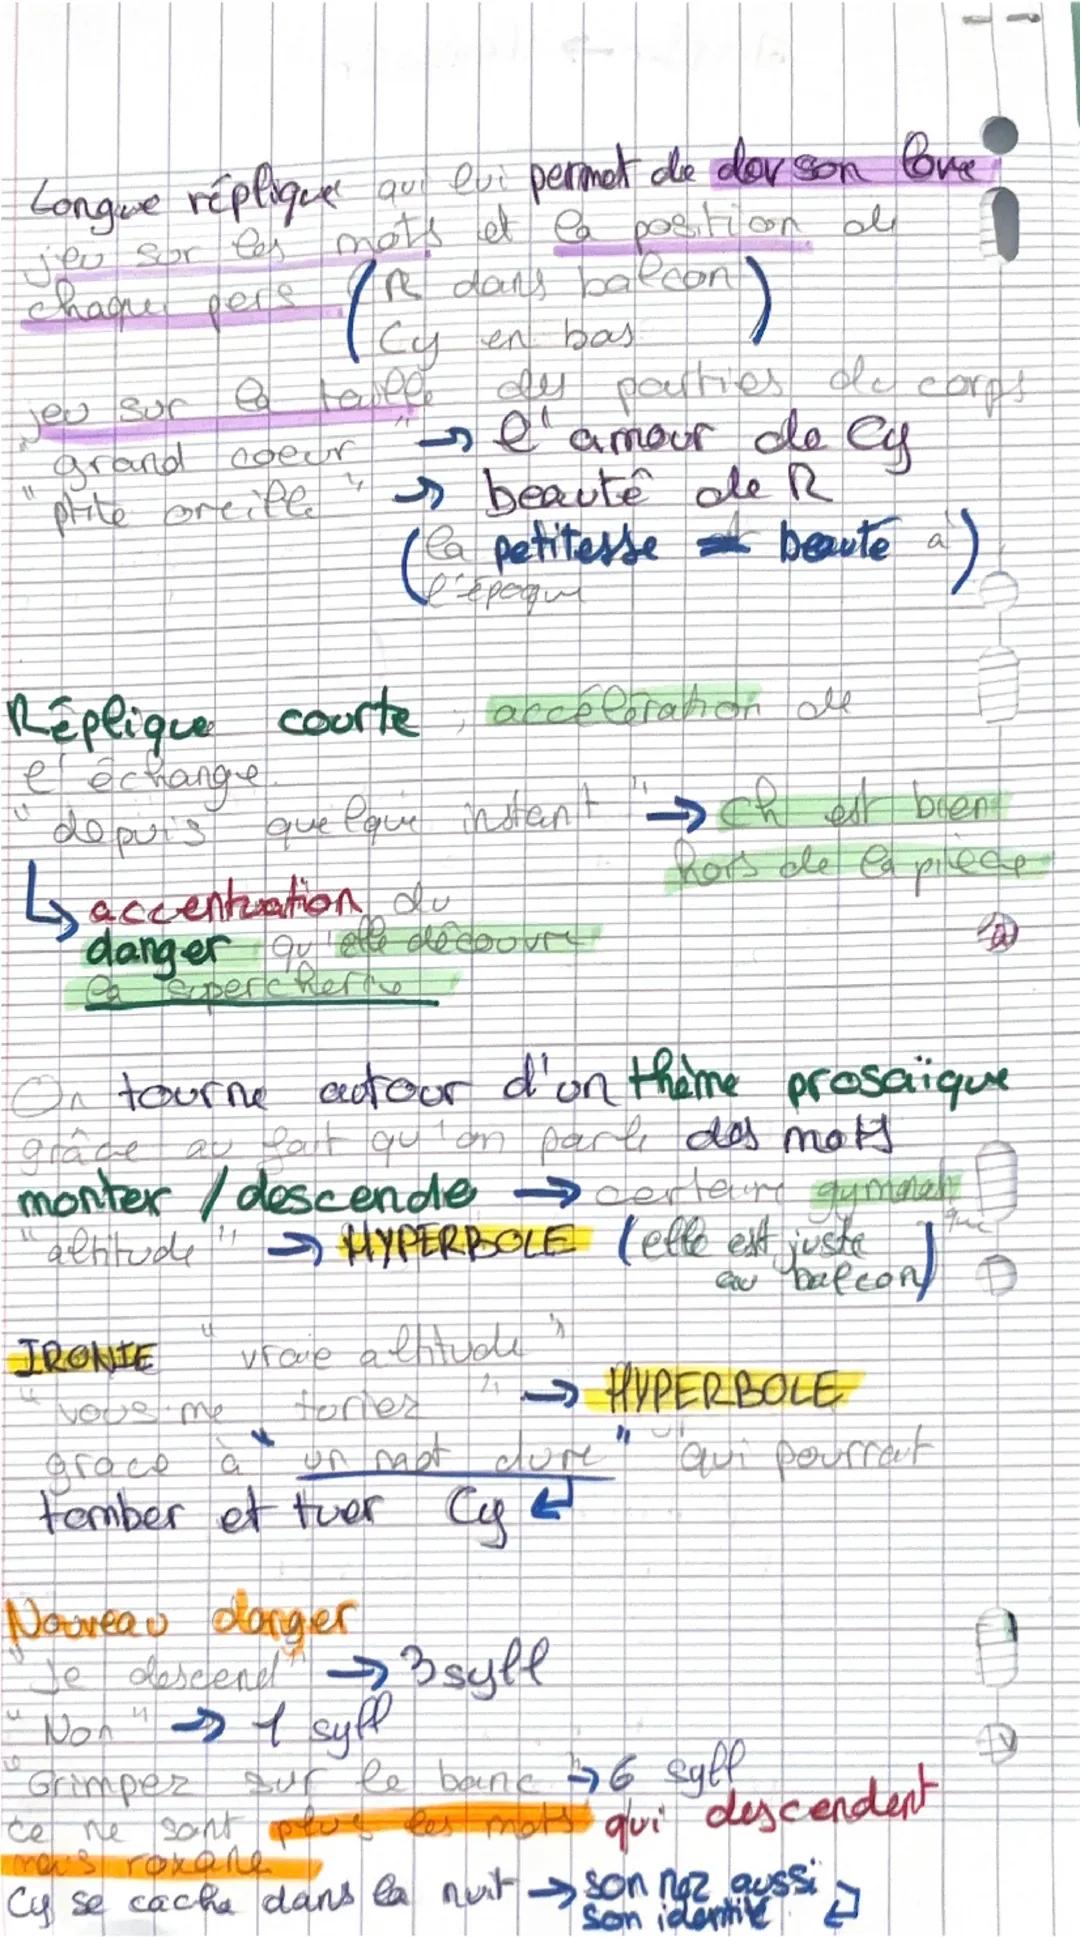 Longue réplique qui lui permet de der son love
jeu sur les mots et la position de
chaque pers (R dans balcon)
Cy en bas
jeu sur la taille des parties de corps
"grand coeur" → l'amour de Cy
"ptite oreille" → beauté de R
(la petitesse beauté à
l'époque)
Réplique courte, accélération de
l'échange
"depuis quelque instant" → ch est bien
hors de la pièce
↳ accentuation du
danger qu'elle découvre
la supercherie
On tourne autour d'un thème prosaïque
grâce au fait qu'on parle des mots
monter / descende → certaine gymnas
tique
"altitude" → HYPERBOLE (elle est juste
au balcon)
IRONIE "vraie altitude"
"vous me turiez" → HYPERBOLE
grace à "un mot dure" qui pourrait
tomber et tuer Cy ↵
Nouveau danger
"Je descend" → 3 syll
"Non" → 1 syll
"Grimpez sur le banc" → 6 syll
ce ne sont plus les mots qui descendent
mais roxane
Cy se cache dans la nuit → son nez aussi
son identité